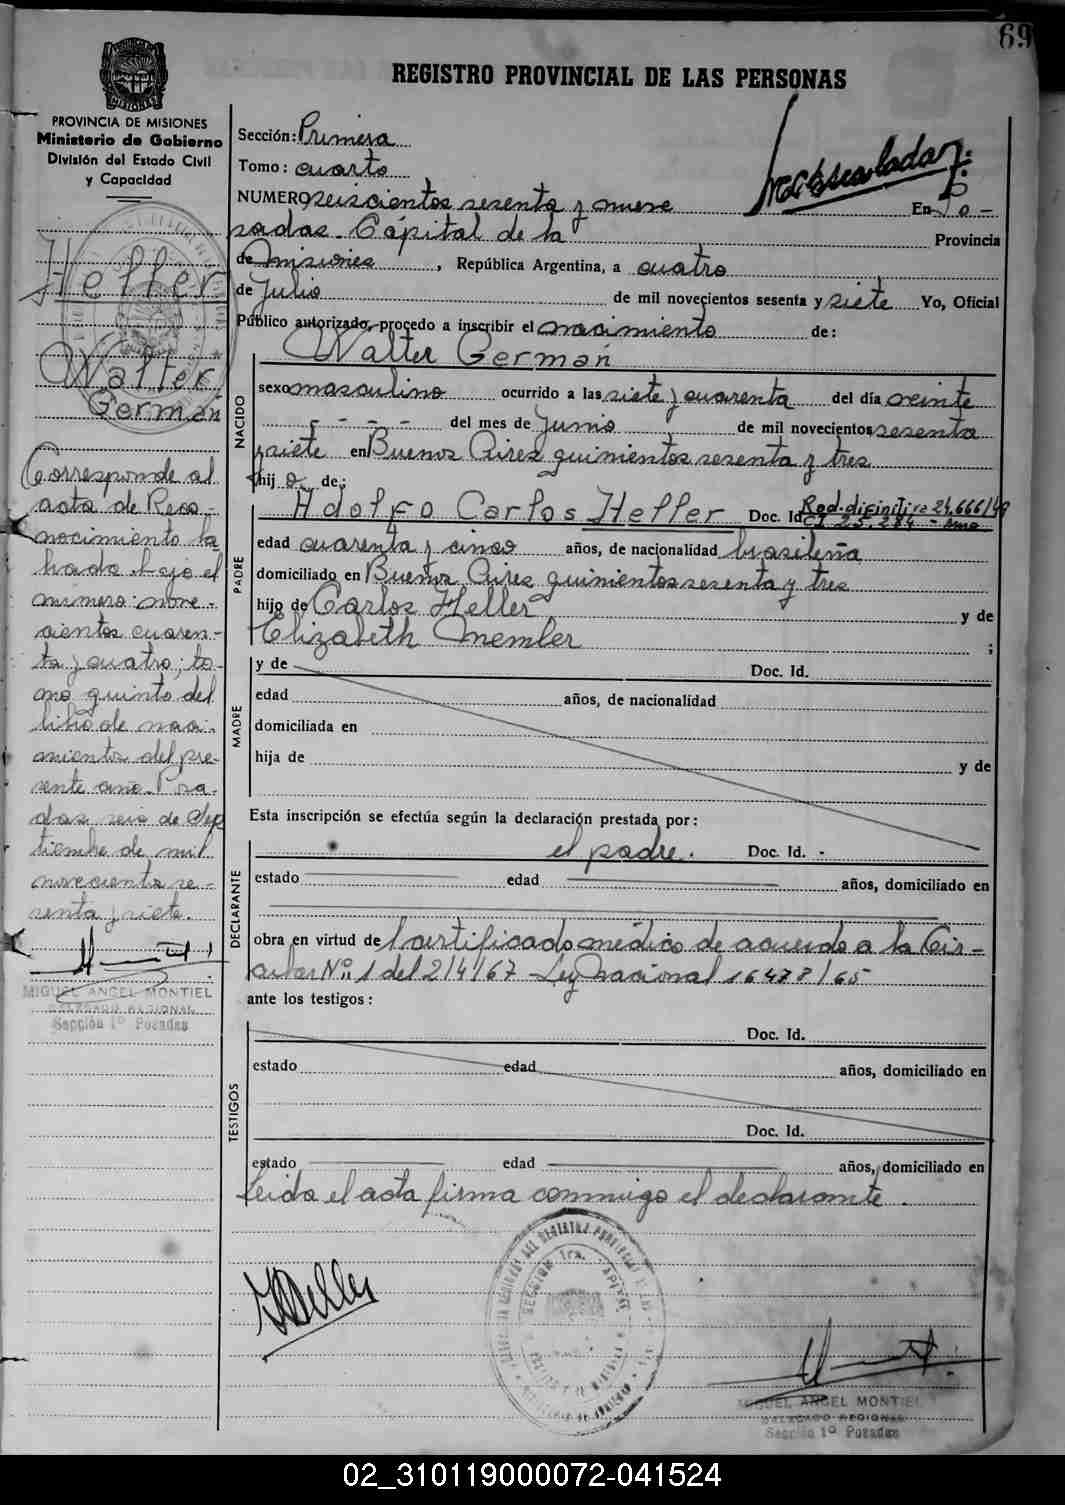 69
REGISTRO PROVINCIAL DE LAS PERSONAS
MISIONES
PROVINCIA DE MISIONES
Ministerio de Gobierno
División del Estado Civil
y Capacidad
Heller
Walter
Germán
Corresponde al
acta de Reco-
nocimiento la-
brada bajo el
número: nove-
cientos cuaren-
ta y cuatro; to-
mo quinto del
libro de naci-
mientos del pre-
sente año. Posa-
das seis de Sep
tiembre de mil
novecientos se-
senta y siete.
MIGUEL ANGEL MONTIEL
DELEGADO REGIONAL
Sección 1º Posadas
Sección: Primera
Tomo: cuarto
NUMERO seiscientos sesenta y nueve En Po-
sadas. Cápital de la Provincia
de Misiones, República Argentina, a cuatro
de Julio de mil novecientos sesenta y siete Yo, Oficial
Público autorizado, procedo a inscribir el nacimiento de:
Walter Germán
NACIDO
sexo masculino ocurrido a las siete y cuarenta del día veinte
- - - - del mes de Junio de mil novecientos sesenta
y siete en Buenos Aires quinientos sesenta y tres
hijo de:
PADRE
Adolfo Carlos Heller Doc. Id. Rad. difinitiva 24.666/48
CI 25.284 -
edad cuarenta y cinco años, de nacionalidad brasileña
domiciliado en Buenos Aires quinientos sesenta y tres
hijo de Carlos Heller y de
Elizabeth Member ;
MADRE
y de Doc. Id.
edad años, de nacionalidad
domiciliada en
hija de y de
Esta inscripción se efectúa según la declaración prestada por:
DECLARANTE
el padre. Doc. Id. -
estado edad años, domiciliado en
obra en virtud de certificado médico de acuerdo a la Cir-
cular Nº 1 del 2/4/67 Ley Nacional 16478/65
ante los testigos:
TESTIGOS
Doc. Id.
estado edad años, domiciliado en
Doc. Id.
estado edad años, domiciliado en
Leida el acta firma conmigo el declarante.
MIGUEL ANGEL MONTIEL
DELEGADO REGIONAL
Sección 1º Posadas
02_310119000072-041524